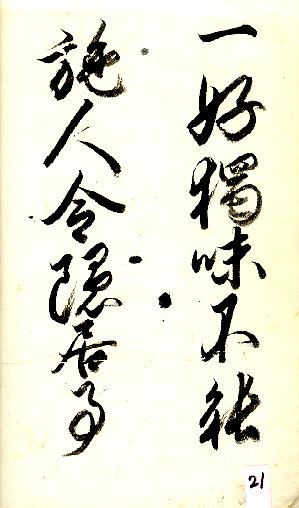 一好獨味不能
施人令隱居事
21